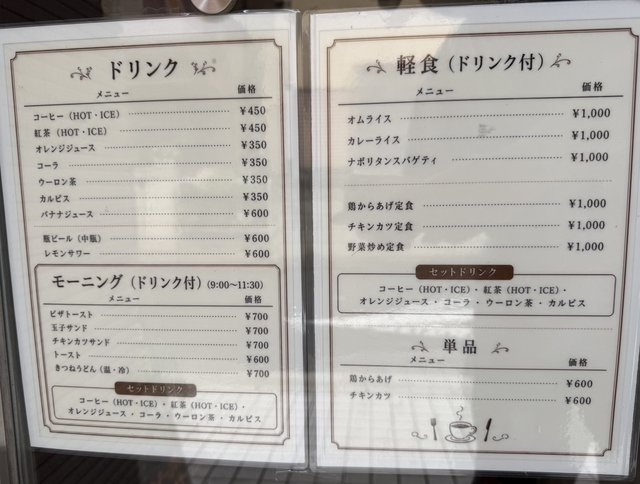 ドリンク
メニュー 価格
コーヒー（HOT・ICE） ¥450
紅茶（HOT・ICE） ¥450
オレンジジュース ¥350
コーラ ¥350
ウーロン茶 ¥350
カルピス ¥350
バナナジュース ¥600
瓶ビール（中瓶） ¥600
レモンサワー ¥600
モーニング（ドリンク付）（9:00〜11:30）
メニュー 価格
ピザトースト ¥700
玉子サンド ¥700
チキンカツサンド ¥700
トースト ¥600
きつねうどん（温・冷） ¥700
セットドリンク
コーヒー（HOT・ICE）・紅茶（HOT・ICE）・
オレンジジュース・コーラ・ウーロン茶・カルピス
軽食（ドリンク付）
メニュー 価格
オムライス ¥1,000
カレーライス ¥1,000
ナポリタンスパゲティ ¥1,000
鶏からあげ定食 ¥1,000
チキンカツ定食 ¥1,000
野菜炒め定食 ¥1,000
セットドリンク
コーヒー（HOT・ICE）・紅茶（HOT・ICE）・
オレンジジュース・コーラ・ウーロン茶・カルピス
単品
メニュー 価格
鶏からあげ ¥600
チキンカツ ¥600